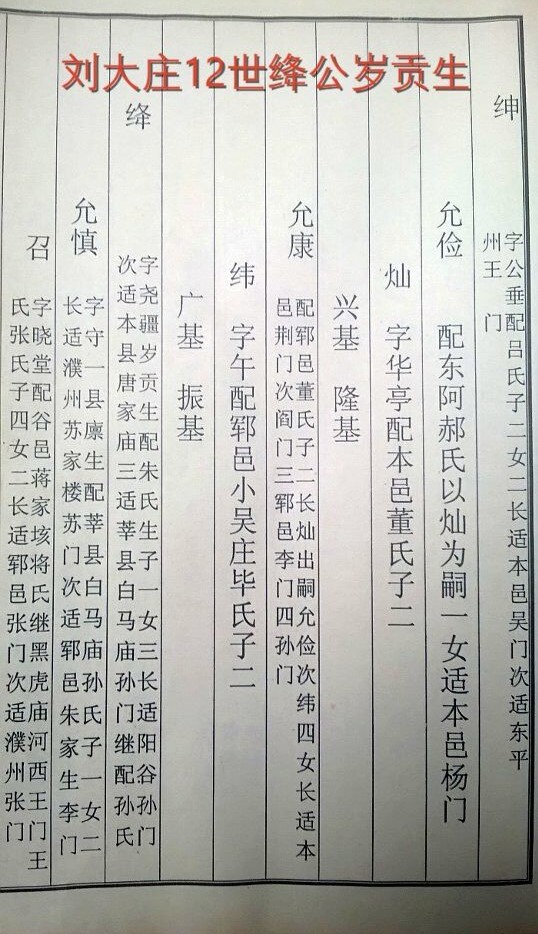 刘大庄12世绛公岁贡生
绅
字公垂配吕氏子二女二长适本邑吴门次适东平
州王门
允俭
配东阿郝氏以灿为嗣一女适本邑杨门
灿
字华亭配本邑董氏子二
兴基 隆基
允康
配郓邑董氏子二长灿出嗣允俭次纬四女长适本
邑荆门次阎门三郓邑李门四孙门
纬
字午配郓邑小吴庄毕氏子二
广基 振基
绛
字尧疆岁贡生配朱氏生子一女三长适阳谷孙门
次适本县唐家庙三适莘县白马庙孙门继配孙氏
允慎
字守一县廪生配莘县白马庙孙氏子一女二
长适濮州苏家楼苏门次适郓邑朱家生李门
召
字晓堂配谷邑蒋家垓将氏继黑虎庙河西王门王
氏张氏子四女二长适郓邑张门次适濮州张门